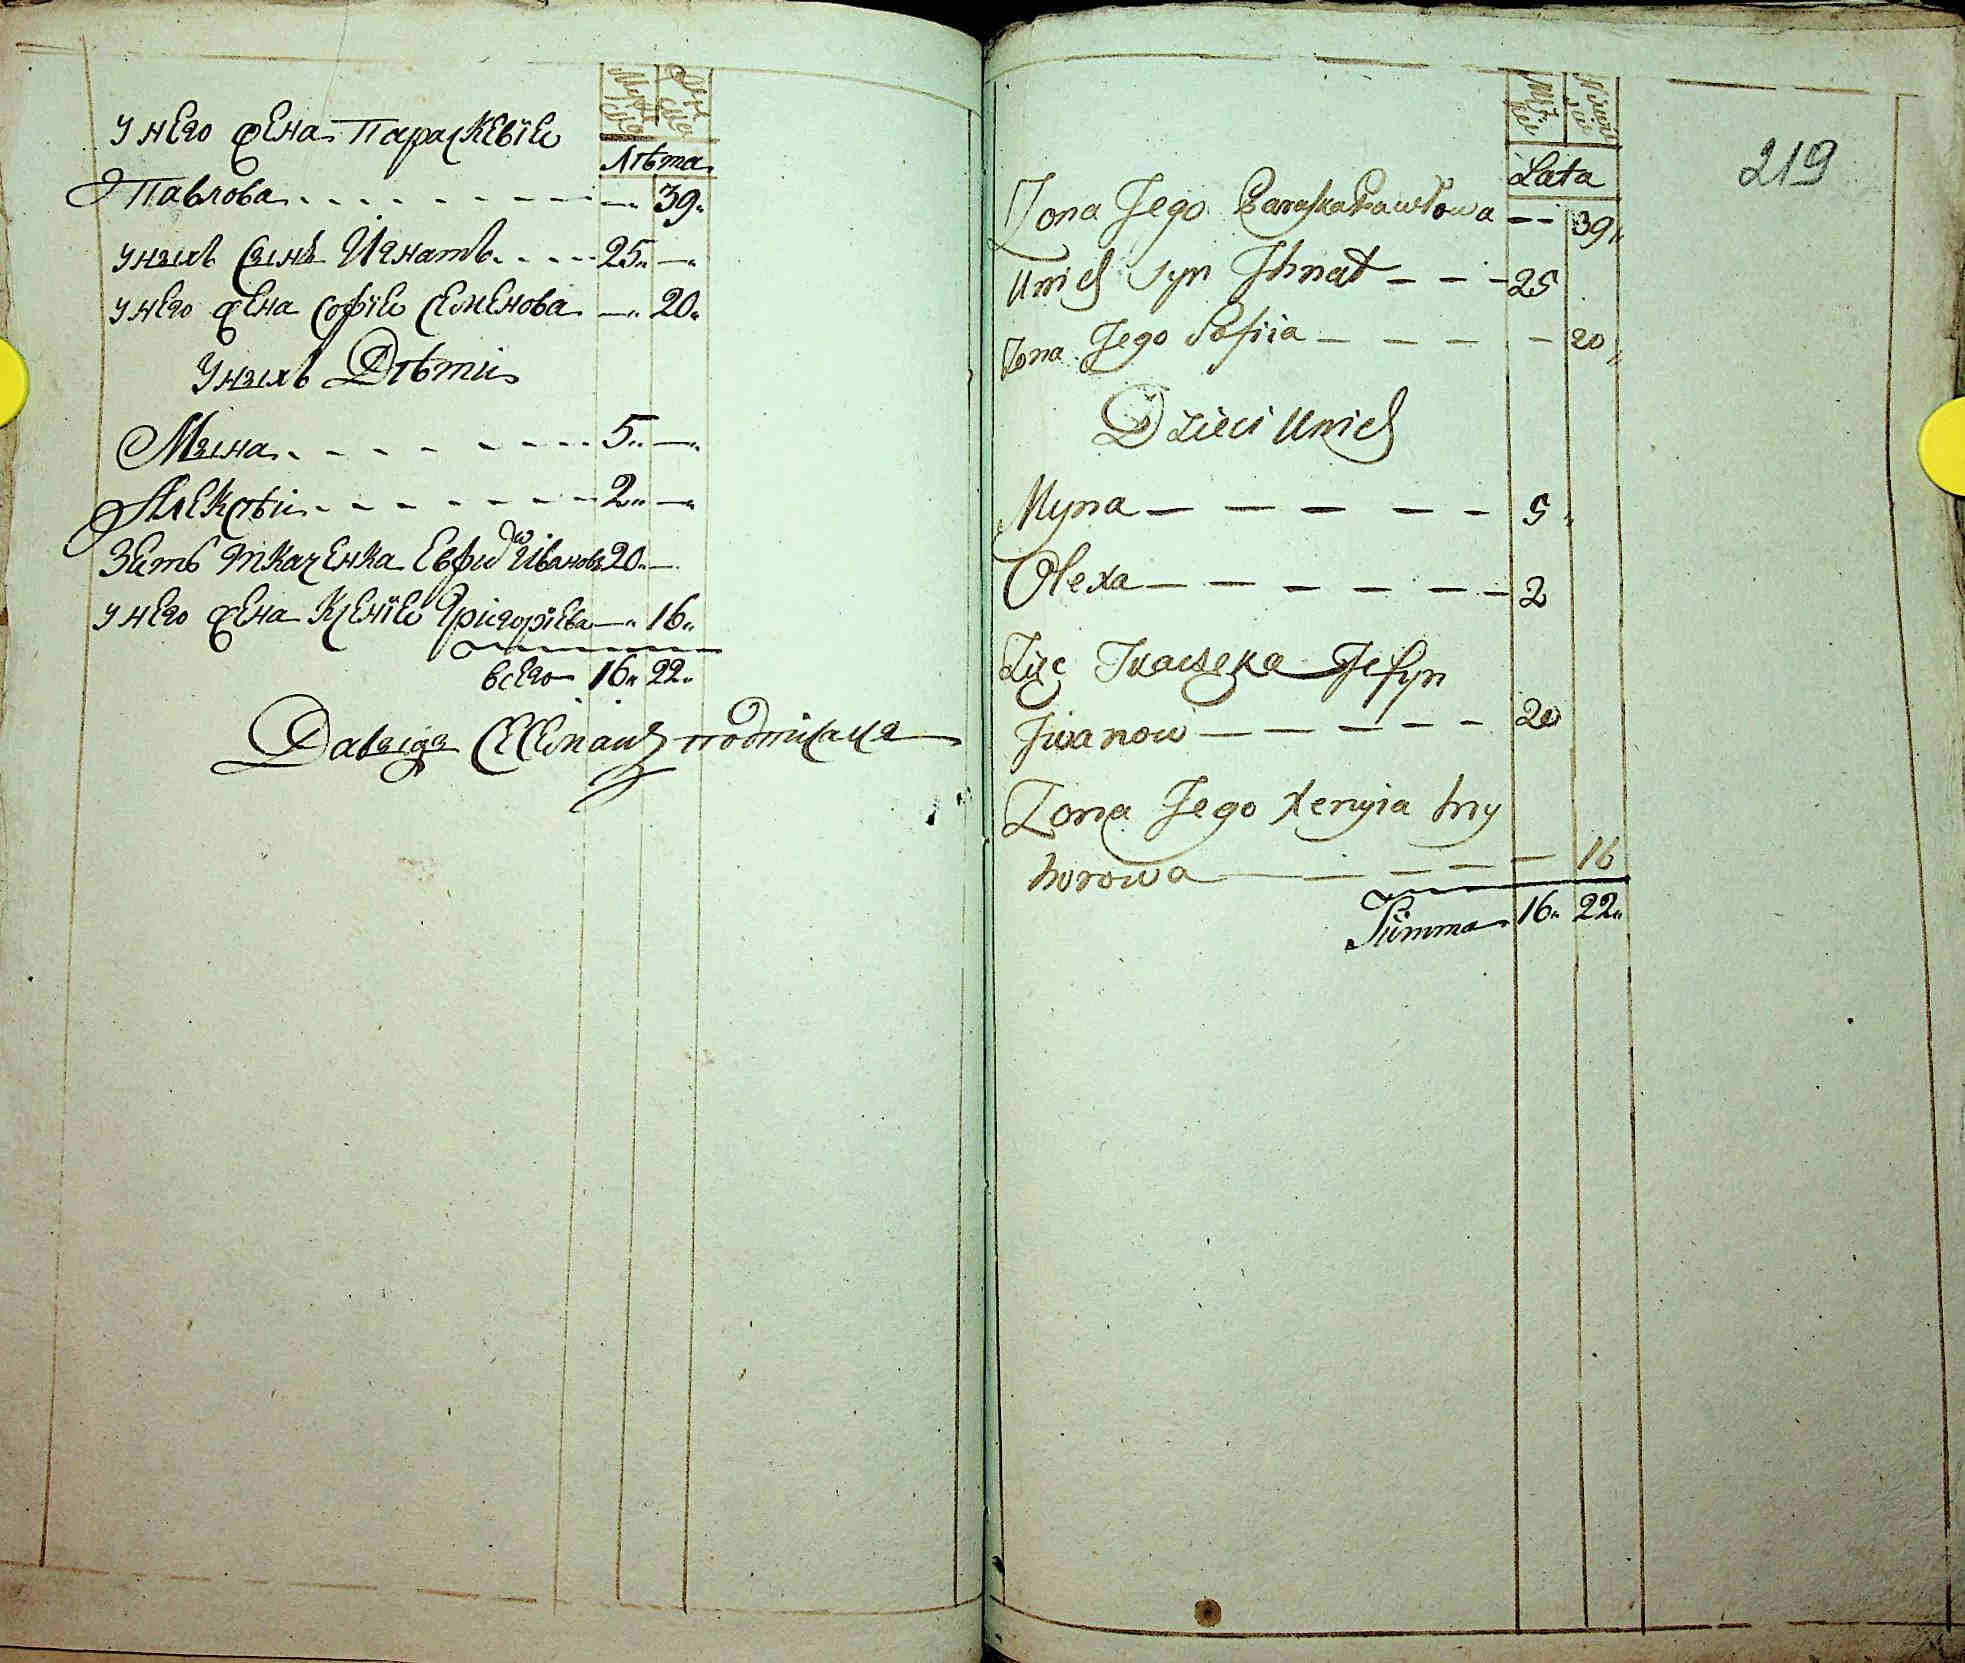 Лѣта
у него жена Параскевія
Павлова - - - - - - - - 39
у ныхъ сынъ Игнатъ - - - - 25
у него жена Софія Семенова - 20
у ныхъ Дѣти
Мына - - - - - - - - 5
Алексѣй - - - - - - - - 2
Зять Ткаченка Евфи Ивановъ 20
у него жена Ксенія Григоріева - 16
всего 16 22
219
Lata
Zona Jego Paraska Pawłowa - - 39
Unich Syn Ihnat - - - 25
Zona Jego Sofiia - - - - - 20
Dzieci Unich
Myna - - - - - - 5
Olexa - - - - - - 2
Zięc Tkaczeka Jefyn
Jwanow - - - - - - 20
Zona Jego Xenyia hry
horowa - - - - - 16
Summa 16 22